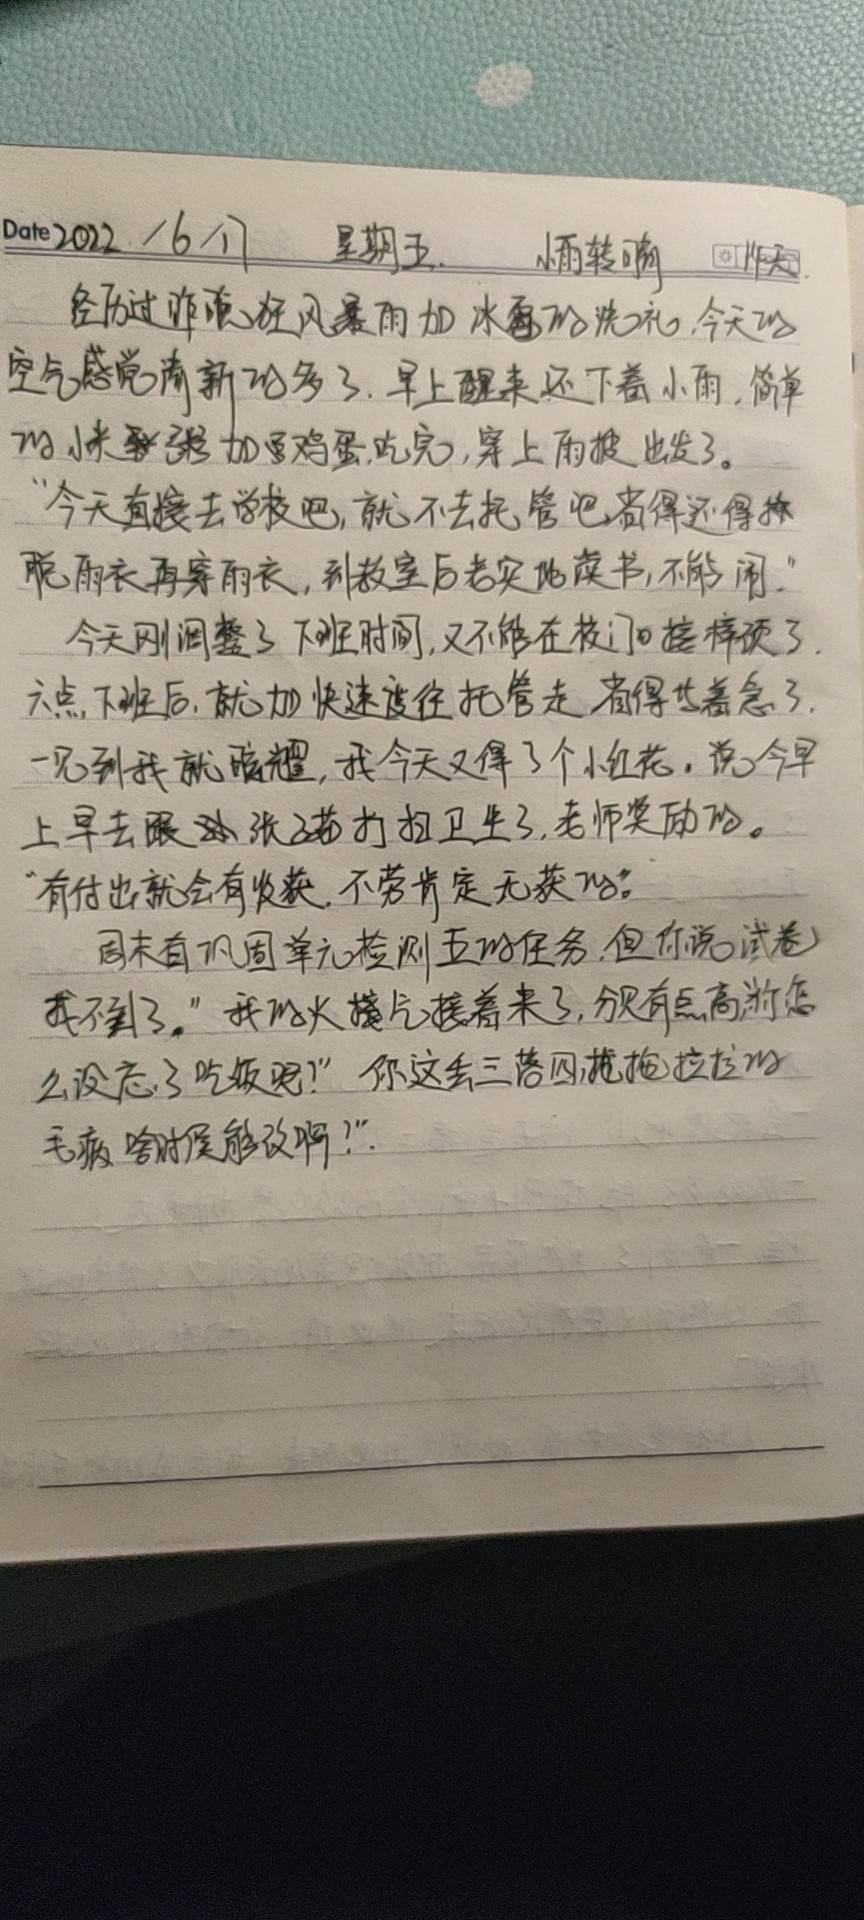 Date 2022./6/17 星期五. 小雨转晴 14天.
经历过昨晚狂风暴雨加冰雹的洗礼,今天的
空气感觉清新的多了.早上醒来还下着小雨,简单
的小米粥加鸡蛋,吃完,穿上雨披出发了。
“今天直接去学校吧,就不去托管吧省得还得
脱雨衣再穿雨衣,到教室后老实地读书,不能闹.”
今天刚调整了下班时间,又不能在校门口接梓硕了.
六点下班后,就加快速度往托管走 省得艾着急了.
一见到我就炫耀,我今天又得了个小红花。说今早
上早去跟张子茹打扫卫生了,老师奖励的。
“有付出就会有收获.不劳肯定无获的”。
周末有巩固单元检测五的任务.但你说“试卷
找不到了。”我的火接着来了,分贝有点高,“你怎
么没忘了吃饭呢?”你这丢三落四,拖拖拉拉的
毛病啥时侯能改啊?”.